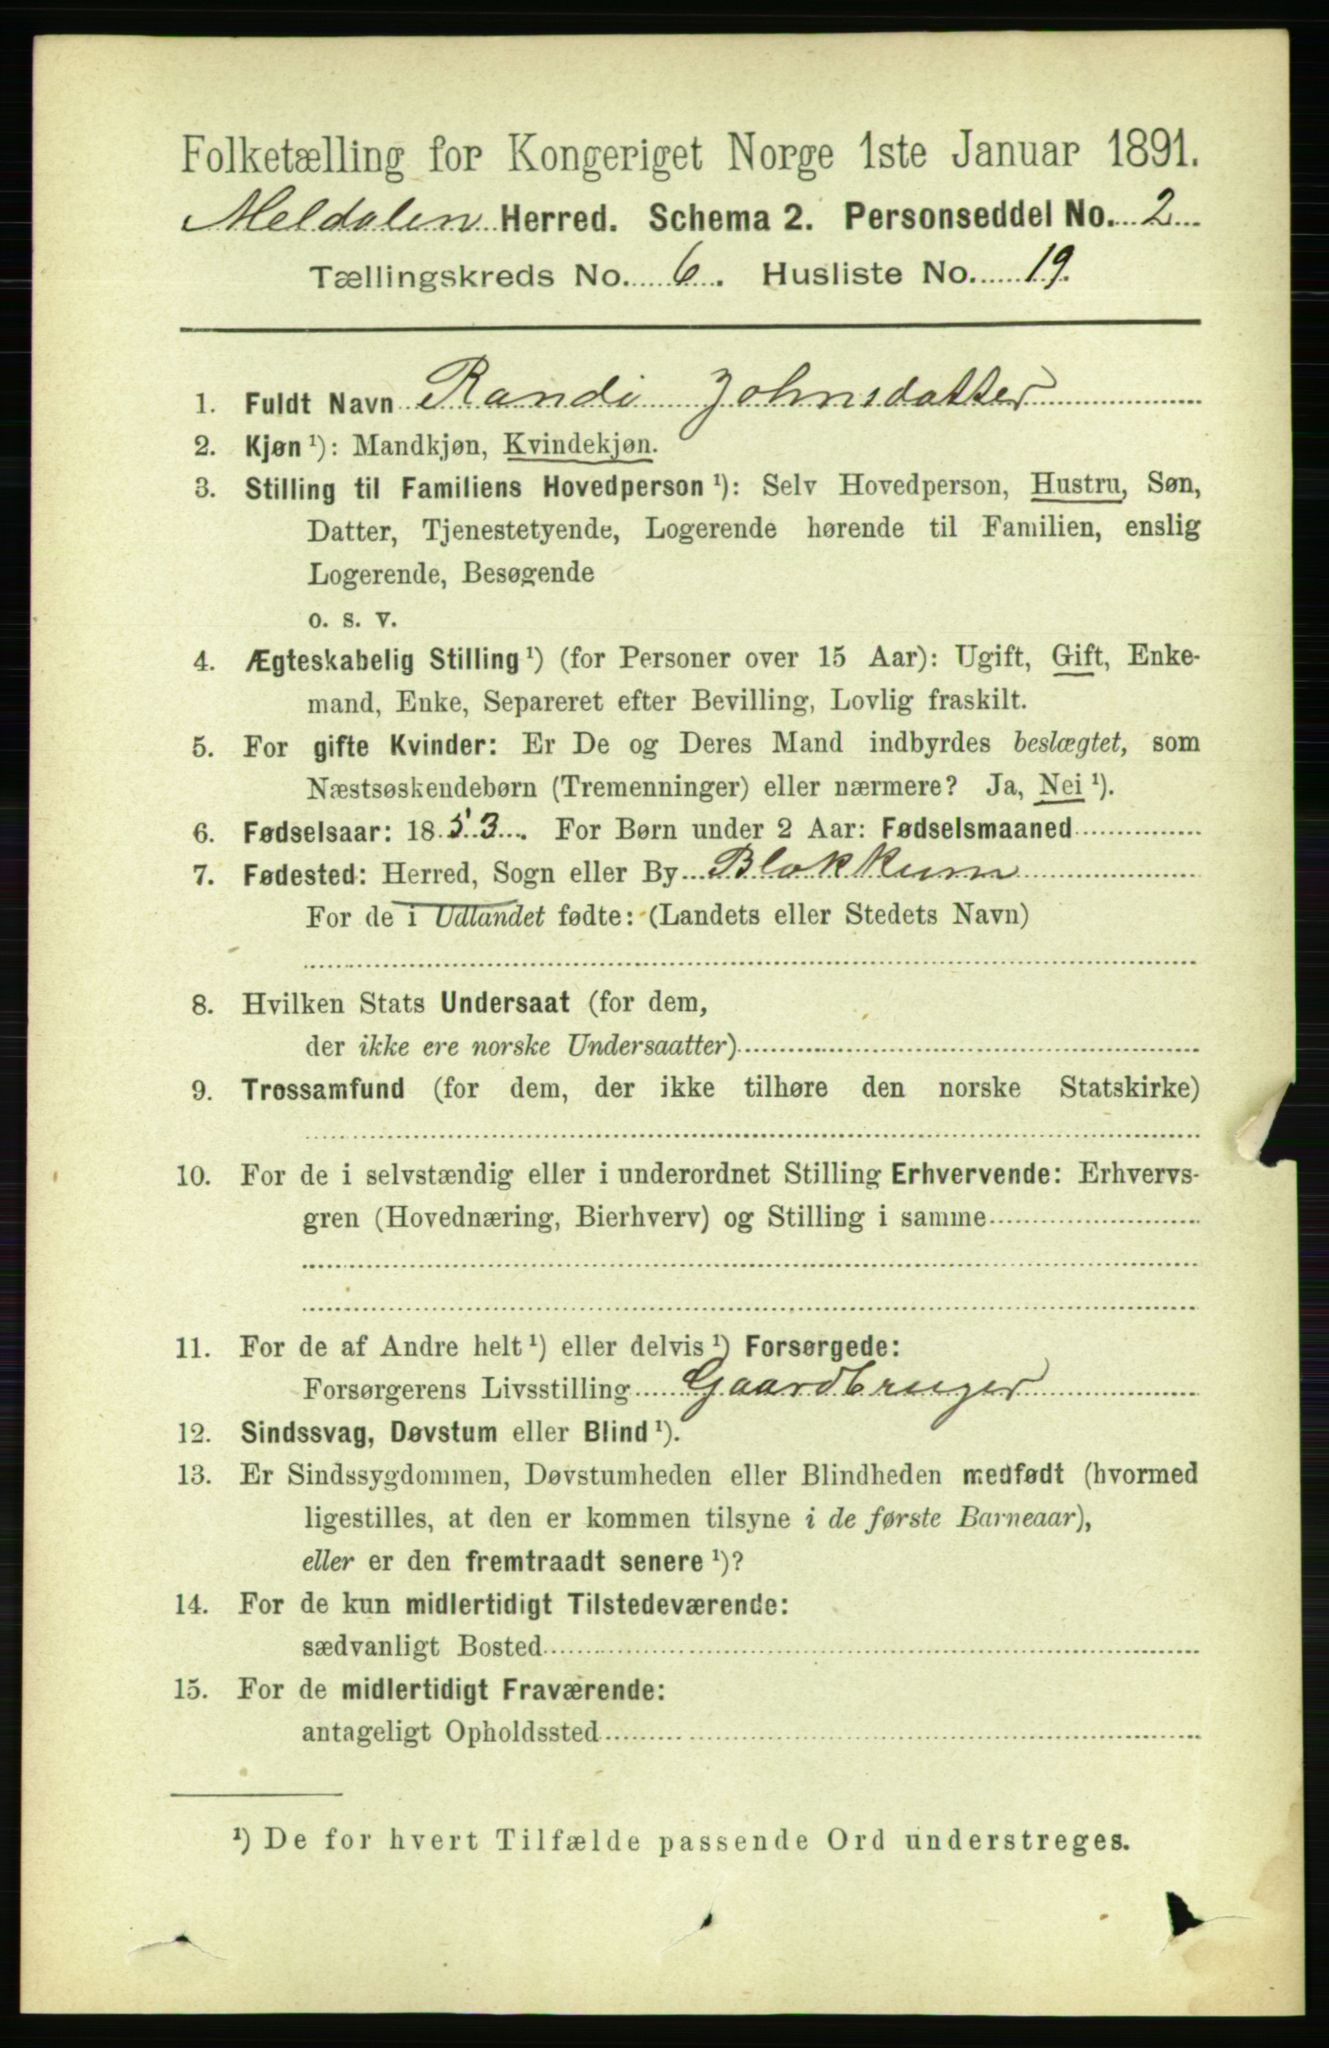 Folketælling for Kongeriget Norge 1ste Januar 1891.
Meldalen Herred. Schema 2. Personseddel No. 2
Tællingskreds No. 6. Husliste No. 19.
1. Fuldt Navn Randi Johnsdatter
2. Kjøn ¹): Mandkjøn, Kvindekjøn.
3. Stilling til Familiens Hovedperson ¹): Selv Hovedperson, Hustru, Søn,
Datter, Tjenestetyende, Logerende hørende til Familien, enslig
Logerende, Besøgende
o. s. v.
4. Ægteskabelig Stilling ¹) (for Personer over 15 Aar): Ugift, Gift, Enke-
mand, Enke, Separeret efter Bevilling, Lovlig fraskilt.
5. For gifte Kvinder: Er De og Deres Mand indbyrdes beslægtet, som
Næstsøskendebørn (Tremenninger) eller nærmere? Ja, Nei ¹).
6. Fødselsaar: 1853. For Børn under 2 Aar: Fødselsmaaned
7. Fødested: Herred, Sogn eller By Blokkum
For de i Udlandet fødte: (Landets eller Stedets Navn)
8. Hvilken Stats Undersaat (for dem,
der ikke ere norske Undersaatter)
9. Trossamfund (for dem, der ikke tilhøre den norske Statskirke)
10. For de i selvstændig eller i underordnet Stilling Erhvervende: Erhvervs-
gren (Hovednæring, Bierhverv) og Stilling i samme
11. For de af Andre helt ¹) eller delvis ¹) Forsørgede:
Forsørgerens Livsstilling Gaardbruger
12. Sindssvag, Døvstum eller Blind ¹).
13. Er Sindssygdommen, Døvstumheden eller Blindheden medfødt (hvormed
ligestilles, at den er kommen tilsyne i de første Barneaar),
eller er den fremtraadt senere ¹)?
14. For de kun midlertidigt Tilstedeværende:
sædvanligt Bosted
15. For de midlertidigt Fraværende:
antageligt Opholdssted
¹) De for hvert Tilfælde passende Ord understreges.